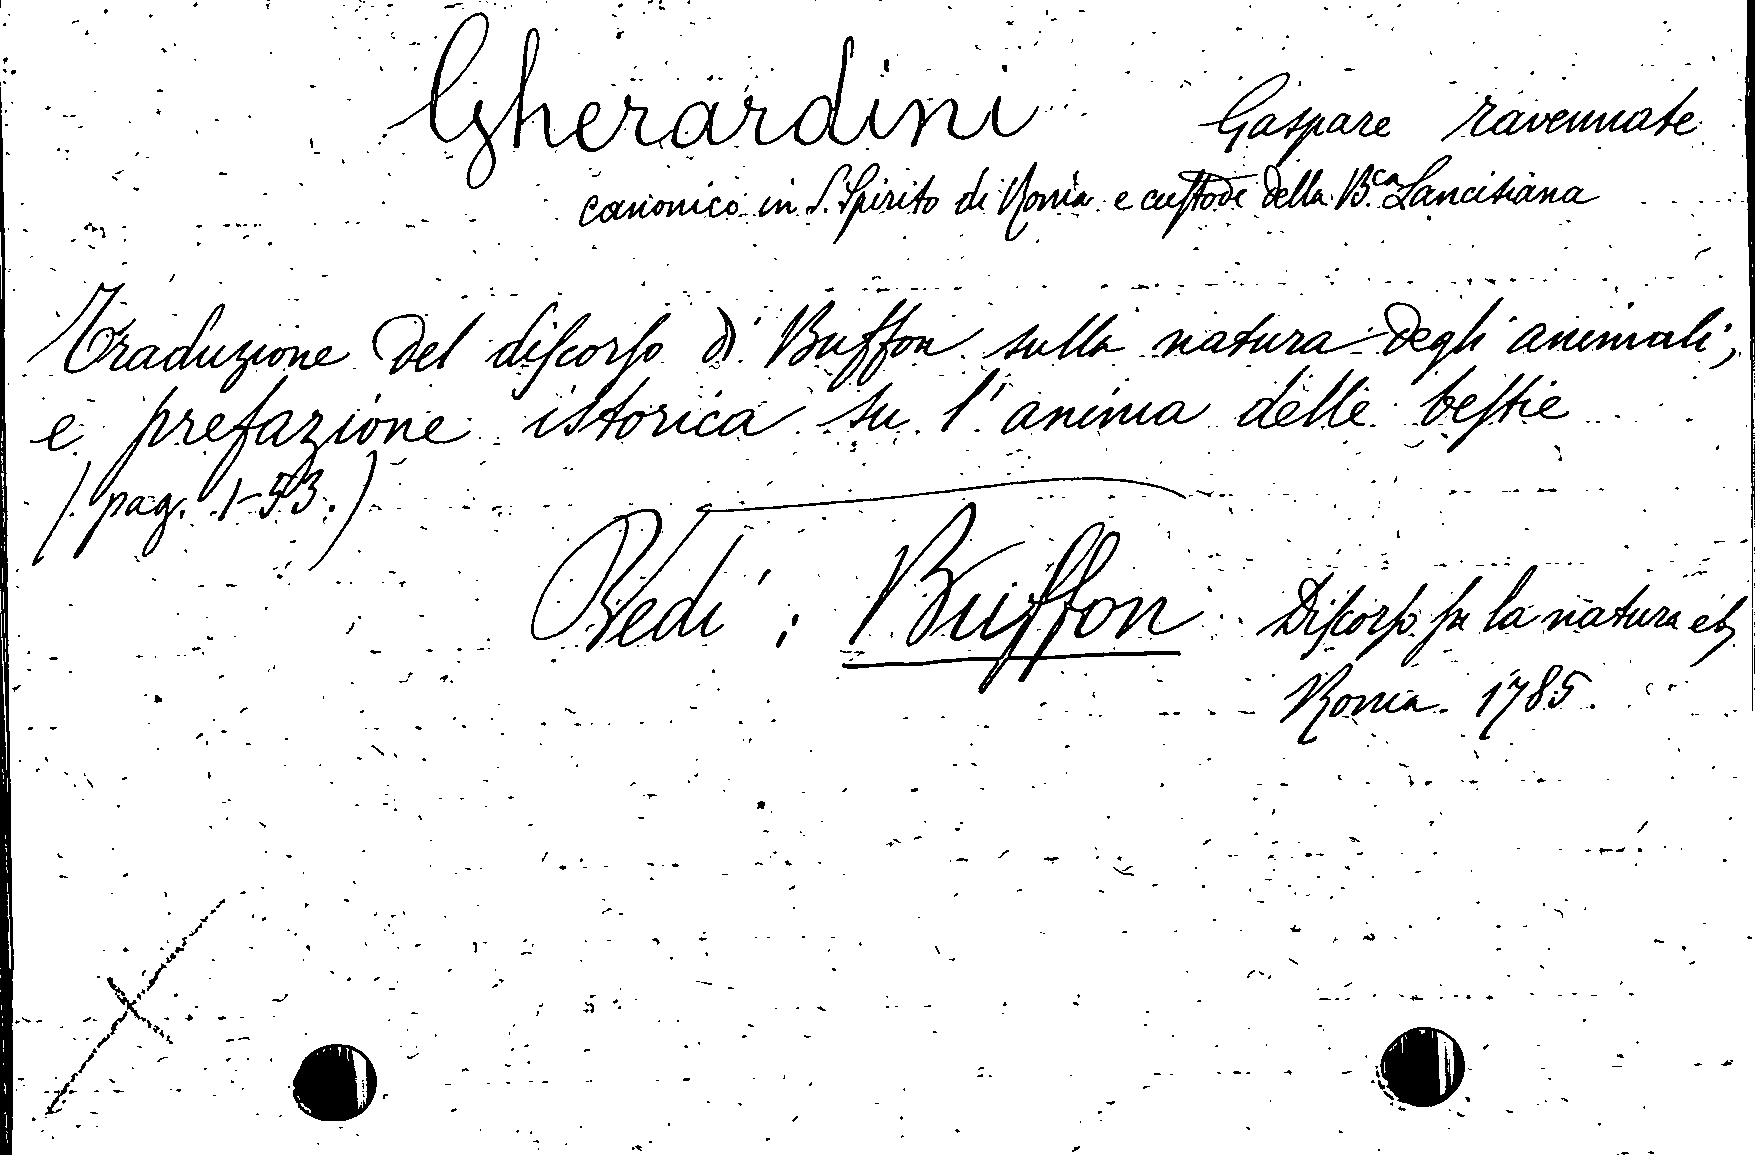 Gherardini Gaspare ravennate
canonico in S. Spirito di Roma e custode della B.ca Lancisiana
Traduzione del discorso di Buffon sulla natura degli animali;
e prefazione istorica su l'anima delle bestie
(pag. 1-53.)
Vedi: Buffon Discorso su la natura etc
Roma. 1785.